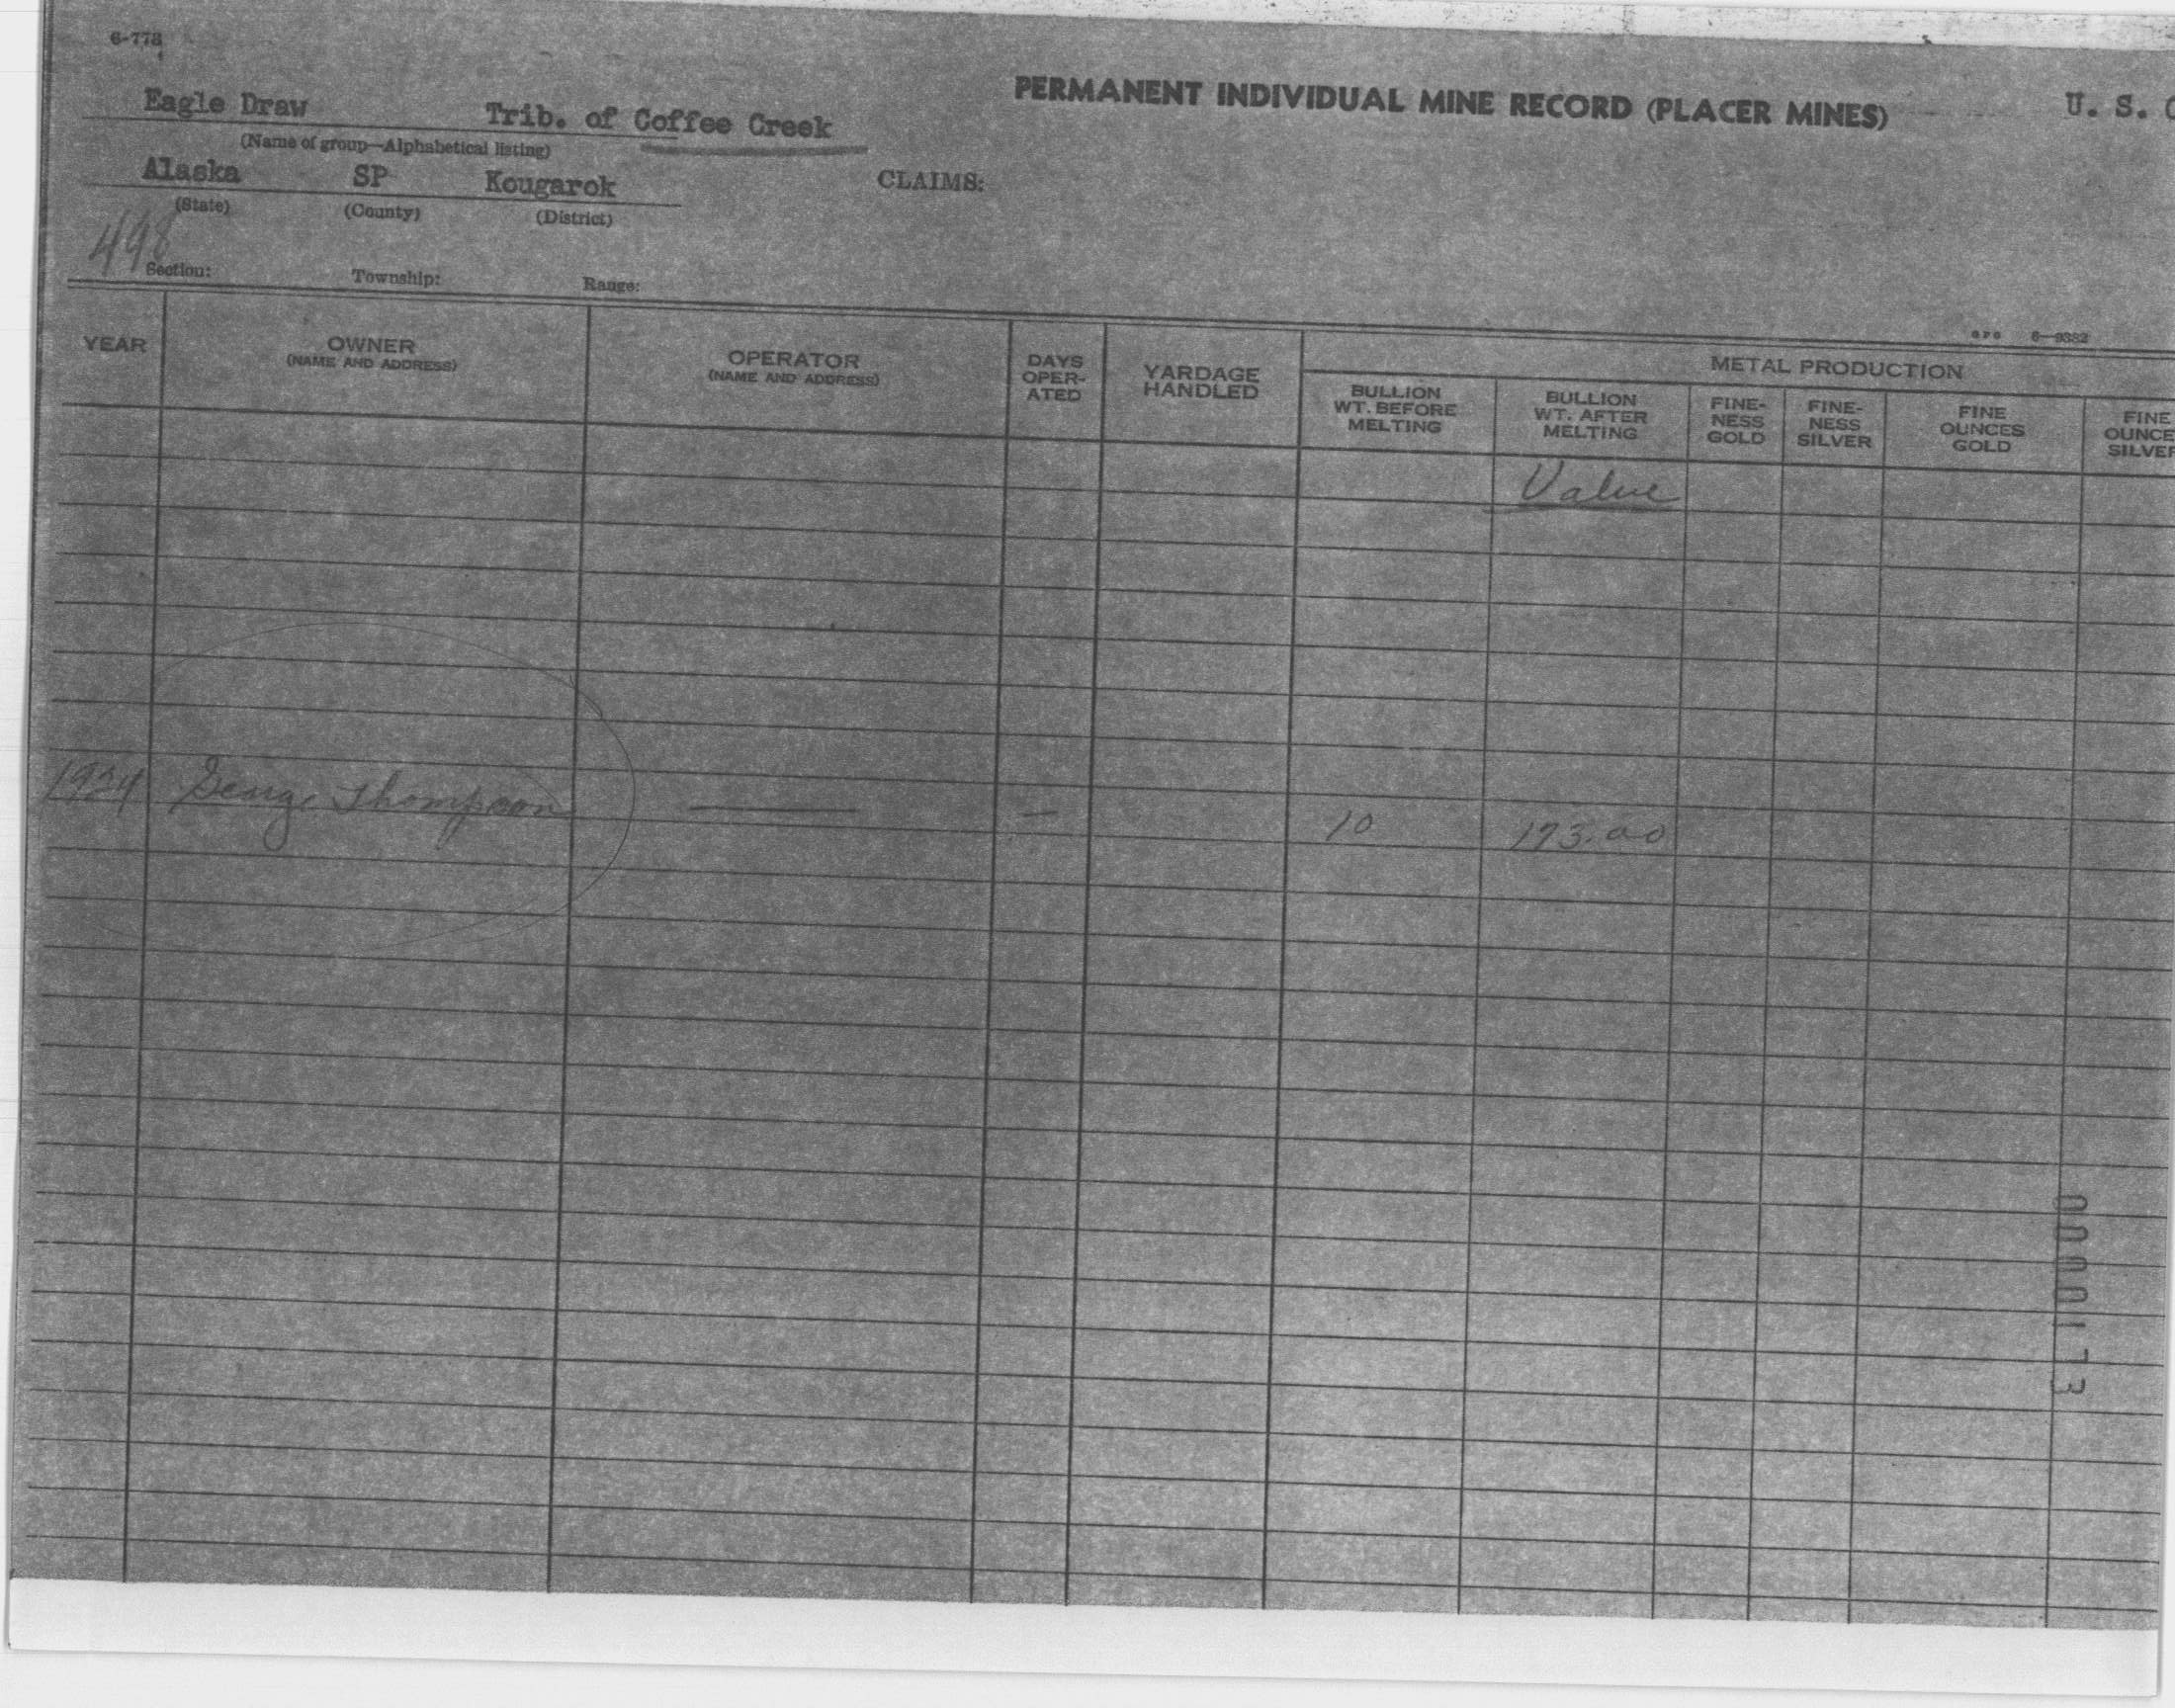 6-773
PERMANENT INDIVIDUAL MINE RECORD (PLACER MINES) U. S.
Eagle Draw Trib. of Coffee Creek
(Name of group—Alphabetical listing)
Alaska SP Kougarok CLAIMS:
(State) (County) (District)
498
Section: Township: Range:
GPO 6—9382
YEAR
OWNER
(NAME AND ADDRESS)
OPERATOR
(NAME AND ADDRESS)
DAYS
OPER-
ATED
YARDAGE
HANDLED
METAL PRODUCTION
BULLION
WT. BEFORE
MELTING
BULLION
WT. AFTER
MELTING
FINE-
NESS
GOLD
FINE-
NESS
SILVER
FINE
OUNCES
GOLD
FINE
OUNCE
SILVER
Value
George Thompson — — 10 173.00
0000173